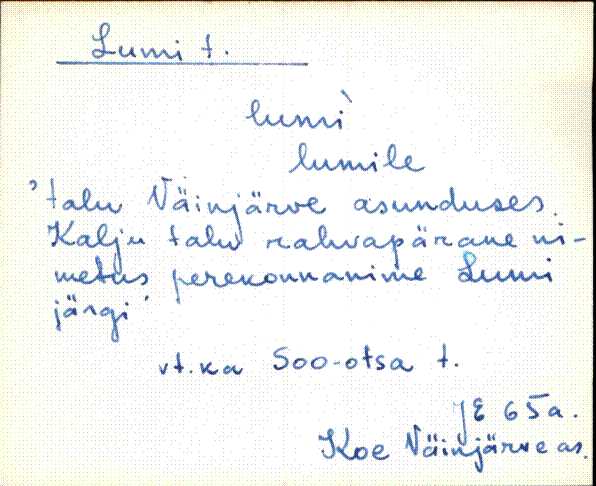 Lumi t.
lumì
lumile
'talu Väinjärve asunduses.
Kalju talu rahvapärane ni-
metus perekonnanime Lumi
järgi'
vt. ka Soo-otsa t.
JE 65a.
Koe Väinjärve as.